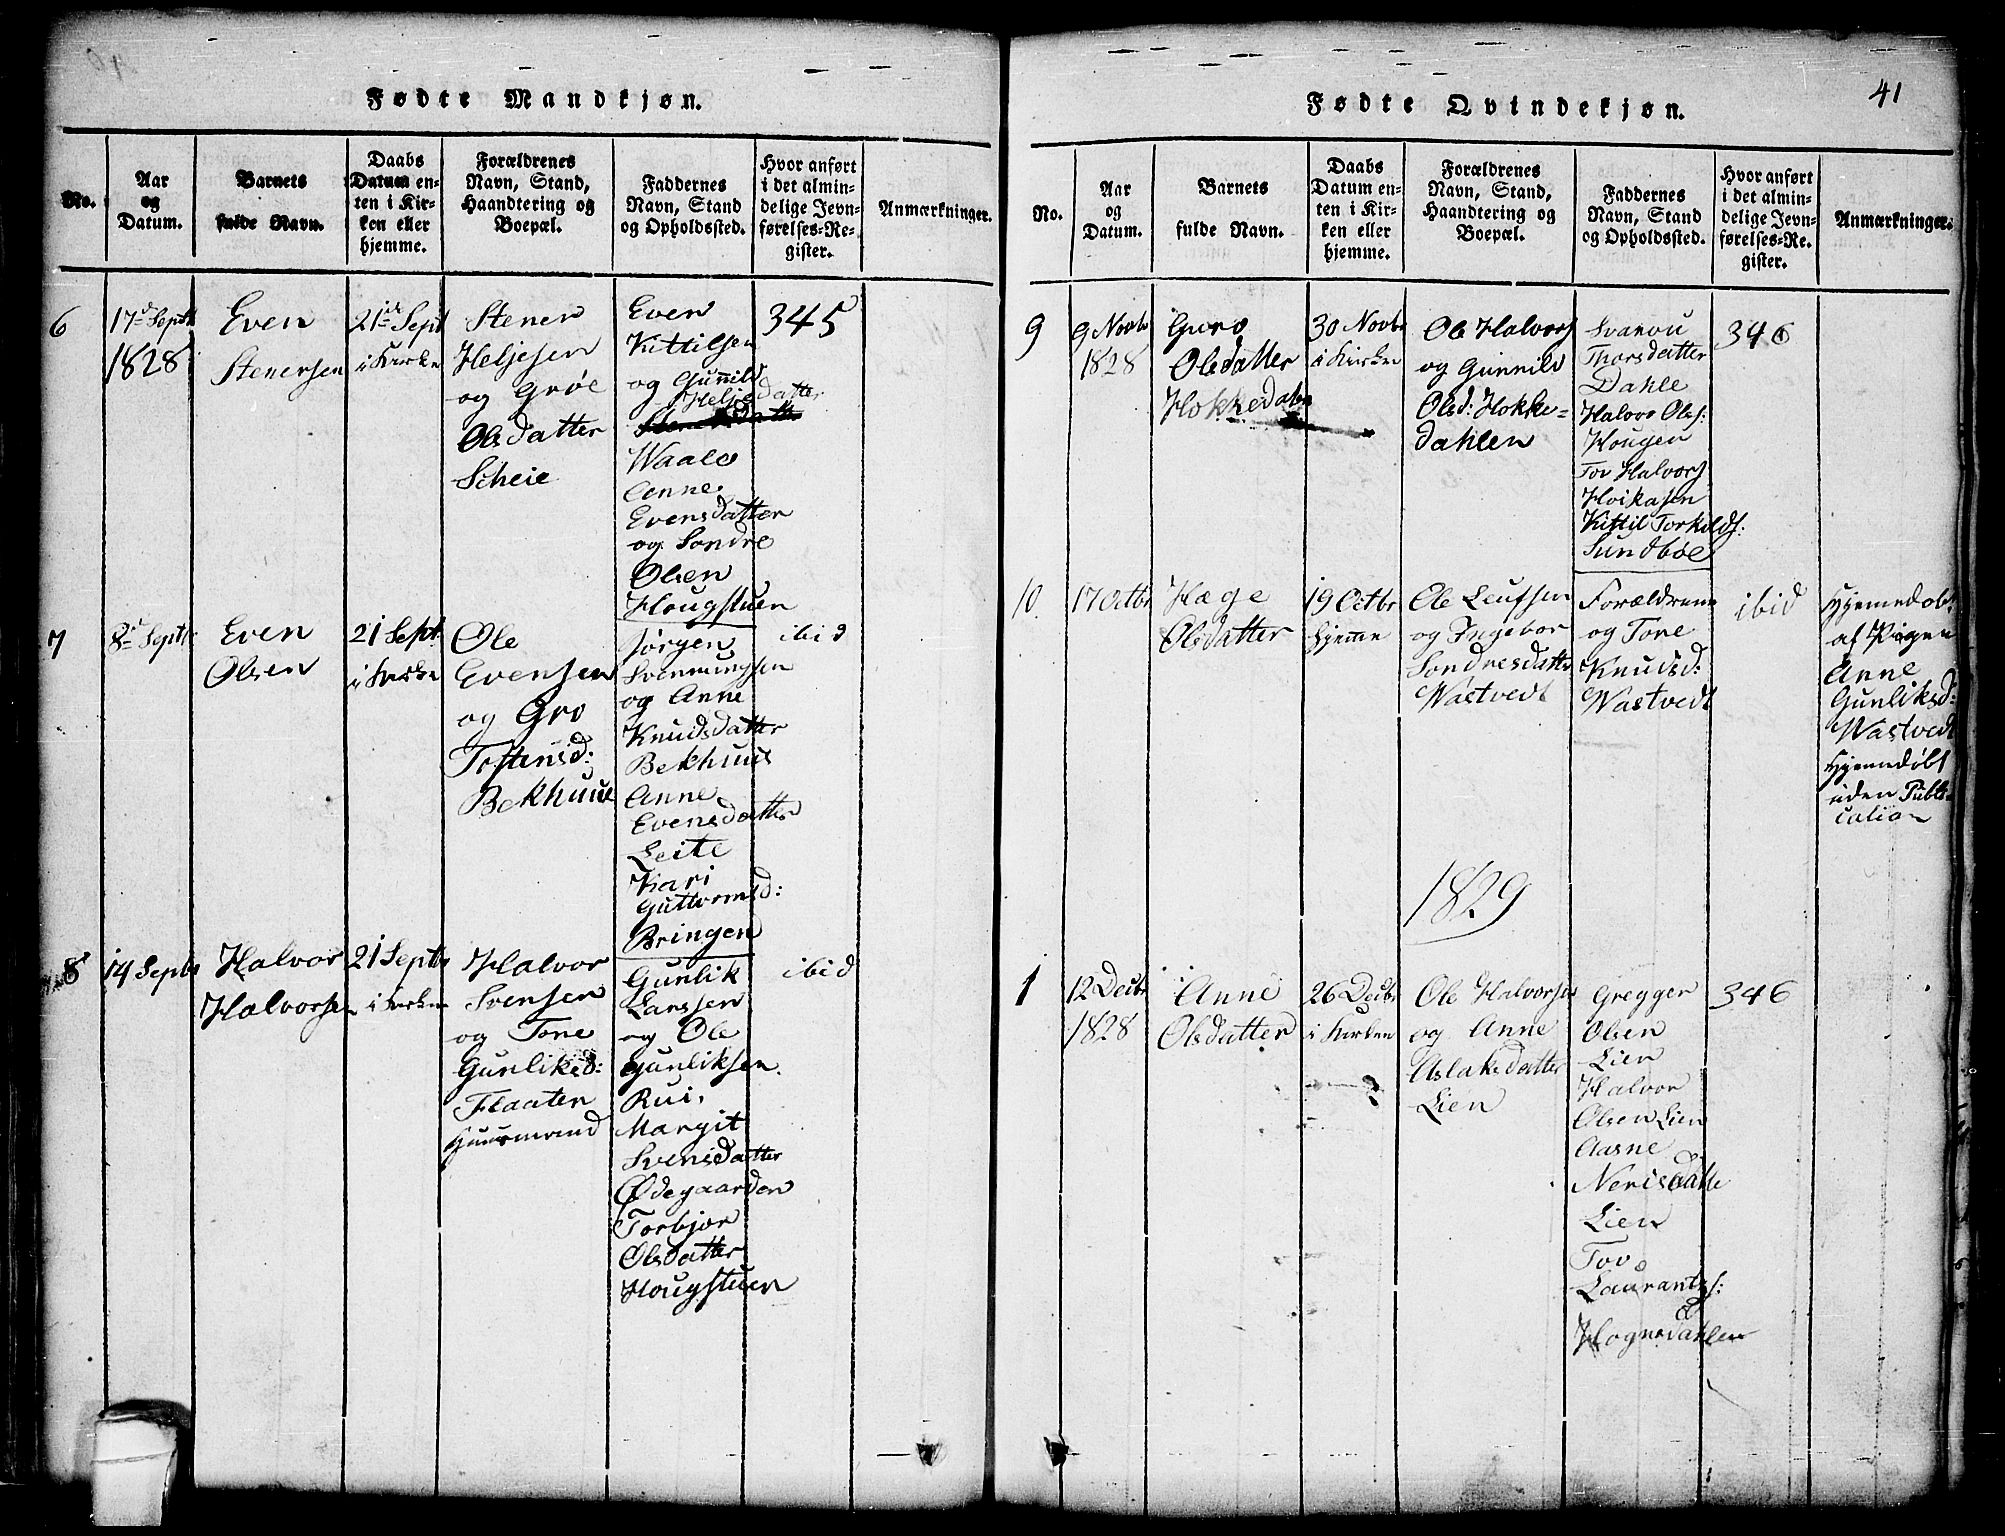 Fødte Mandkjøn.
No.
Aar
og
Datum.
Barnets
fulde Navn.
Daabs
Datum en-
ten i Kir-
ken eller
hjemme.
Forældrenes
Navn, Stand,
Haandtering og
Boepæl.
Faddernes
Navn, Stand
og Opholdssted.
Hvor anført
i det almin-
delige Jevn-
førelses-Re-
gister.
Anmærkninger.
6
17d Septr
1828
Even
Stenersen
21de Sept
i Kirken
Stener
Heljesen
og Grøe
Olsdatter
Scheie
Even
Kittilsen
og Gunnild
Heljedatter
Waale
Anne
Evensdatter
og Sondre
Olsen
Hougstuen
345
7
8d Septr
Even
Olsen
21 Sept.
i Kirken
Ole
Evensen
og Gro
Tostensd:
Bekhuue
Jørgen
Svennungsen
og Anne
Knudsdatter
Bekhuus
Anne
Evensdatter
Leite
Kari
Guttormsd:
Bringen
ibid
8
14 Septr
Halvor
Halvorsen
21 Septr
i Kirken
Halvor
Svensen
og Tone
Gunliksd:
Flaaten
Huusmand
Gunlik
Larssen
og Ole
Gunliksen
Rui,
Margit
Svensdatter
Ødegaarden
Torbjør
Olsdatter
Hougstuen
ibid
41
Fødte Qvindekjøn.
No.
Aar
og
Datum.
Barnets
fulde Navn.
Daabs
Datum en-
ten i Kir-
ken eller
hjemme.
Forældrenes
Navn, Stand,
Haandtering og
Boepæl.
Faddernes
Navn, Stand
og Opholdssted.
Hvor anført
i det almin-
delige Jevn-
førelses-Re-
gister.
Anmærkninger.
9
9 Novbr
1828
Guro
Olsdatter
Hokkedalen
30 Novbr
i Kirken
Ole Halvors
og Gunnild
Olsd: Hokke=
dahlen
Svanou
Thorsdatter
Dahle
Halvor Ols:
Hougen
Tov Halvors
Hvikasen
Kittil Torkilds:
Sundbøe
346
10.
17 Octbr
Hæge
Olsdatter
19 Octbr
hjemme
Ole Leufsen
og Ingebor
Sondresdatter
Wastvedt
Forældrene
og Tone
Knudsd:
Wastvedt
ibid
Hjemedøbt
af Pigen
Anne
Gunliksd:
Wastvedt
Hjemmdøbt
uden Publi-
cation
1829
1
12 Decbr
1828
Anne
Olsdatter
26 Decbr
i Kirken
Ole Halvorsen
og Anne
Aslaksdatter
Lien
Gregger
Olsen
Lien
Halvor
Olsen Lien
Aasne
Nerisdatte
Lien
Tov
Laurantzs:
Hognedahlen
346